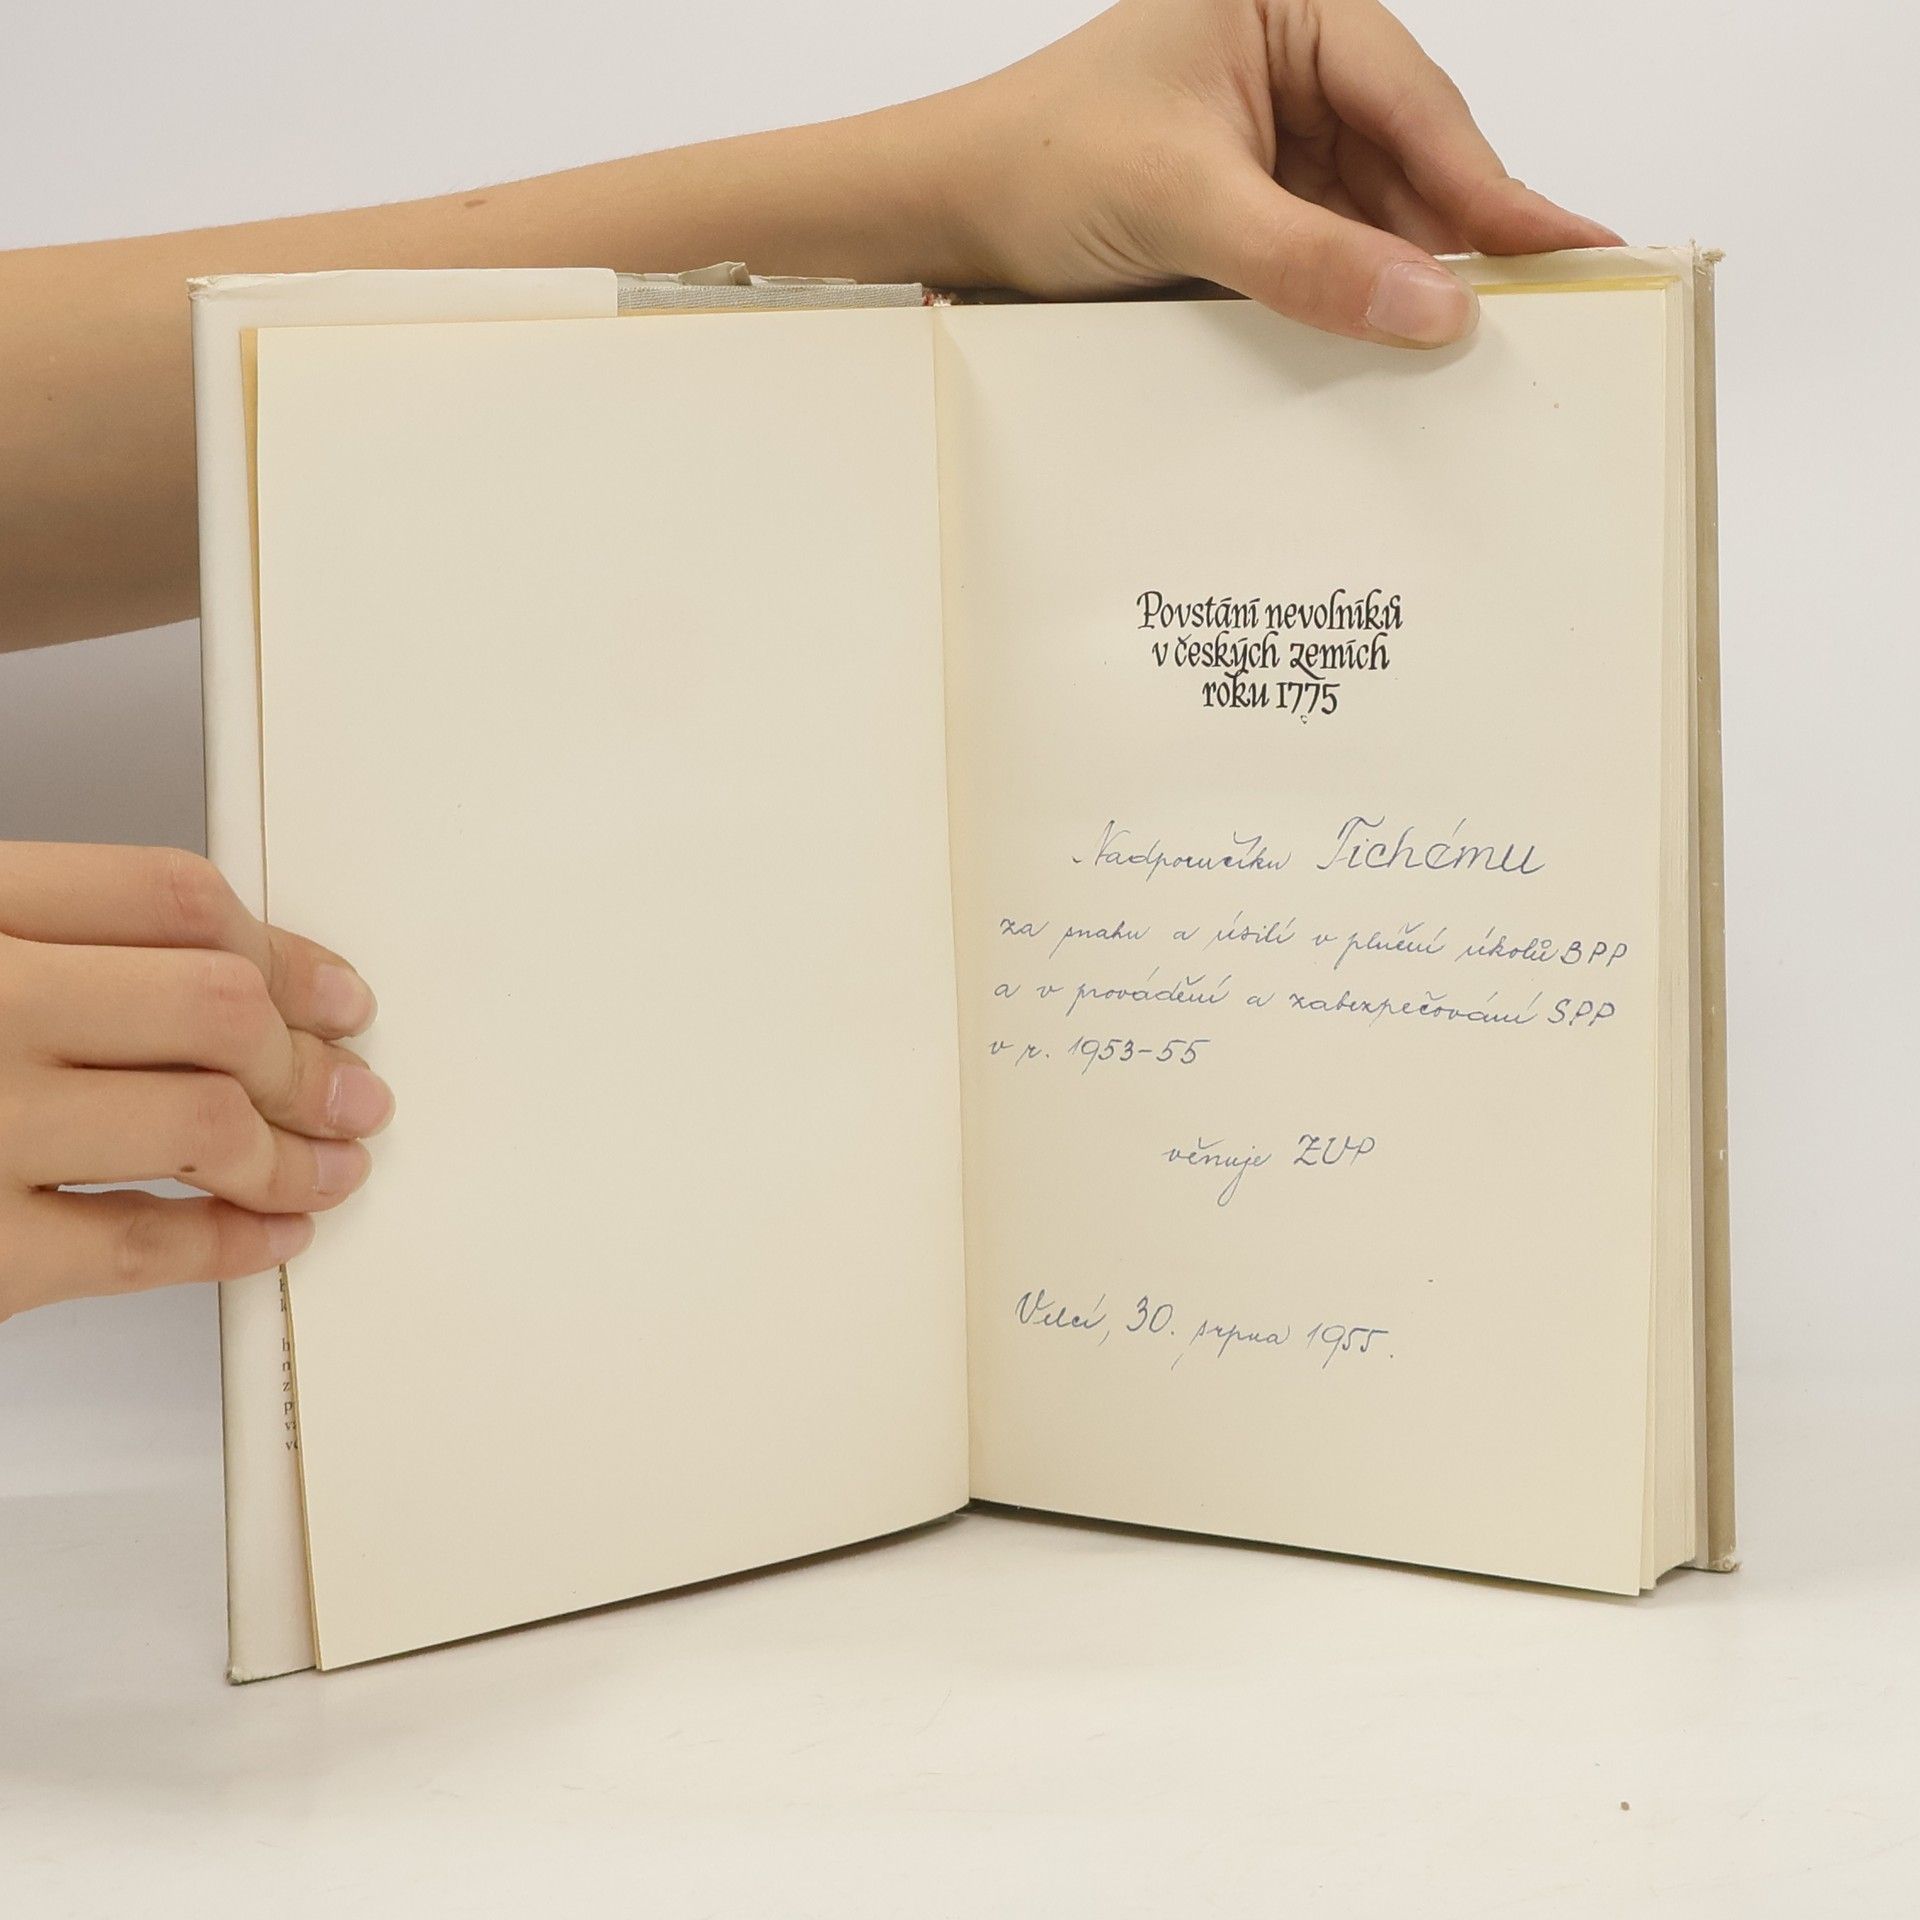 Povstání nevolníků
v českých zemích
roku 1775
Nadporučíku Tichému
za snahu a úsilí v plnění úkolů BPP
a v provádění a zabezpečování SPP
v r. 1953-55
věnuje ZVP
Velcí, 30. srpna 1955.
h
n
z
p
v